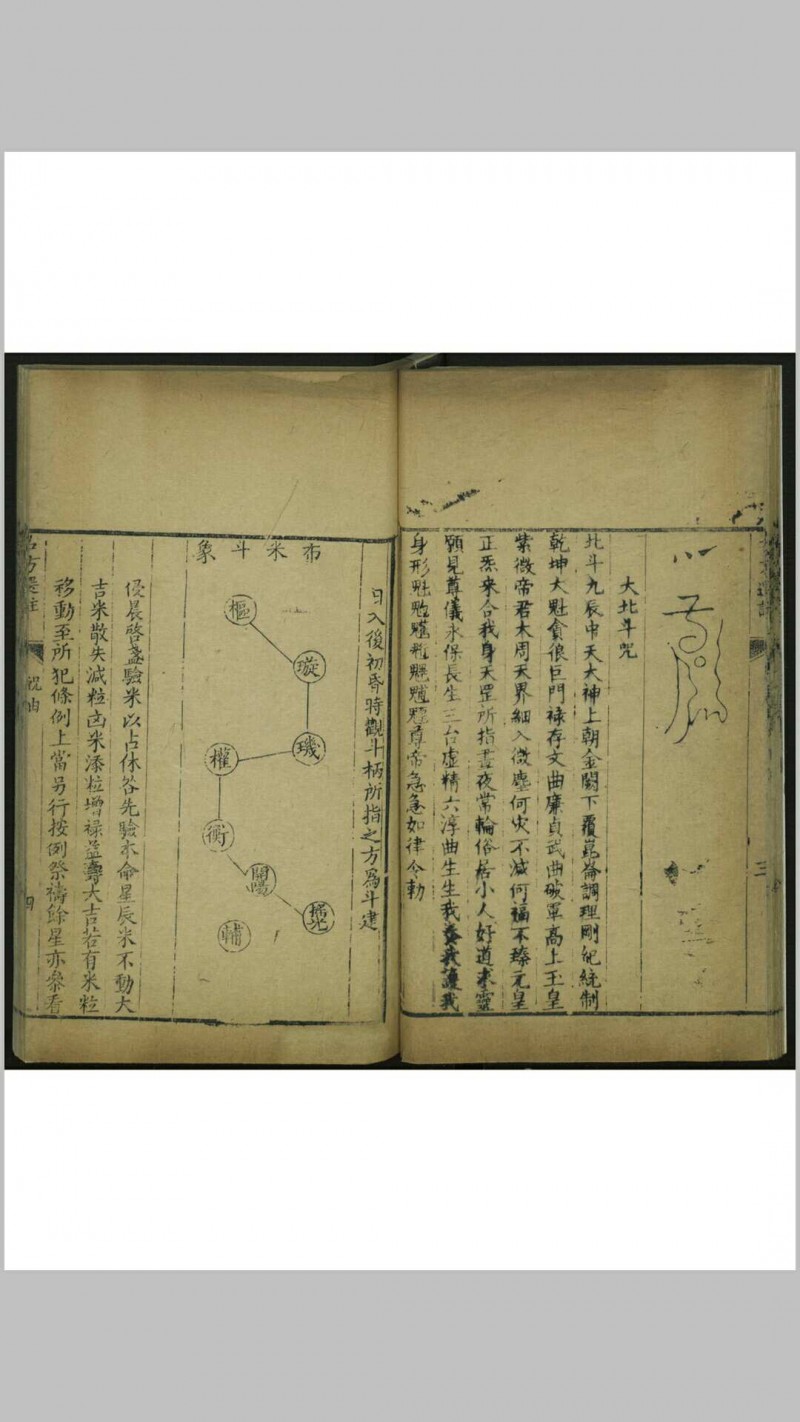 三
大北斗咒
北斗九辰中天大神上朝金闕下覆崑崙調理剛紀統制
乾坤大魁貪狼巨門祿存文曲廉貞武曲破軍高上玉皇
紫微帝君大周天界細入微塵何灾不滅何福不臻元皇
正炁來合我身天罡所指晝夜常輪俗居小人好道求靈
願見尊儀永保長生三台虛精六淳曲生生我養我護我
身形尊帝急急如律令勅
日入後初昏時觀斗柄所指之方為斗建
布米斗象
樞
璇
璣
權
衡
開陽
輔
侵晨啓盞驗米以占休咎先驗本命星辰米不動大
吉米散失減粒凶米添粒增禄益壽大吉若有米粒
移動至所犯條例上當另行按例祭禱餘星亦參看
祝由
四